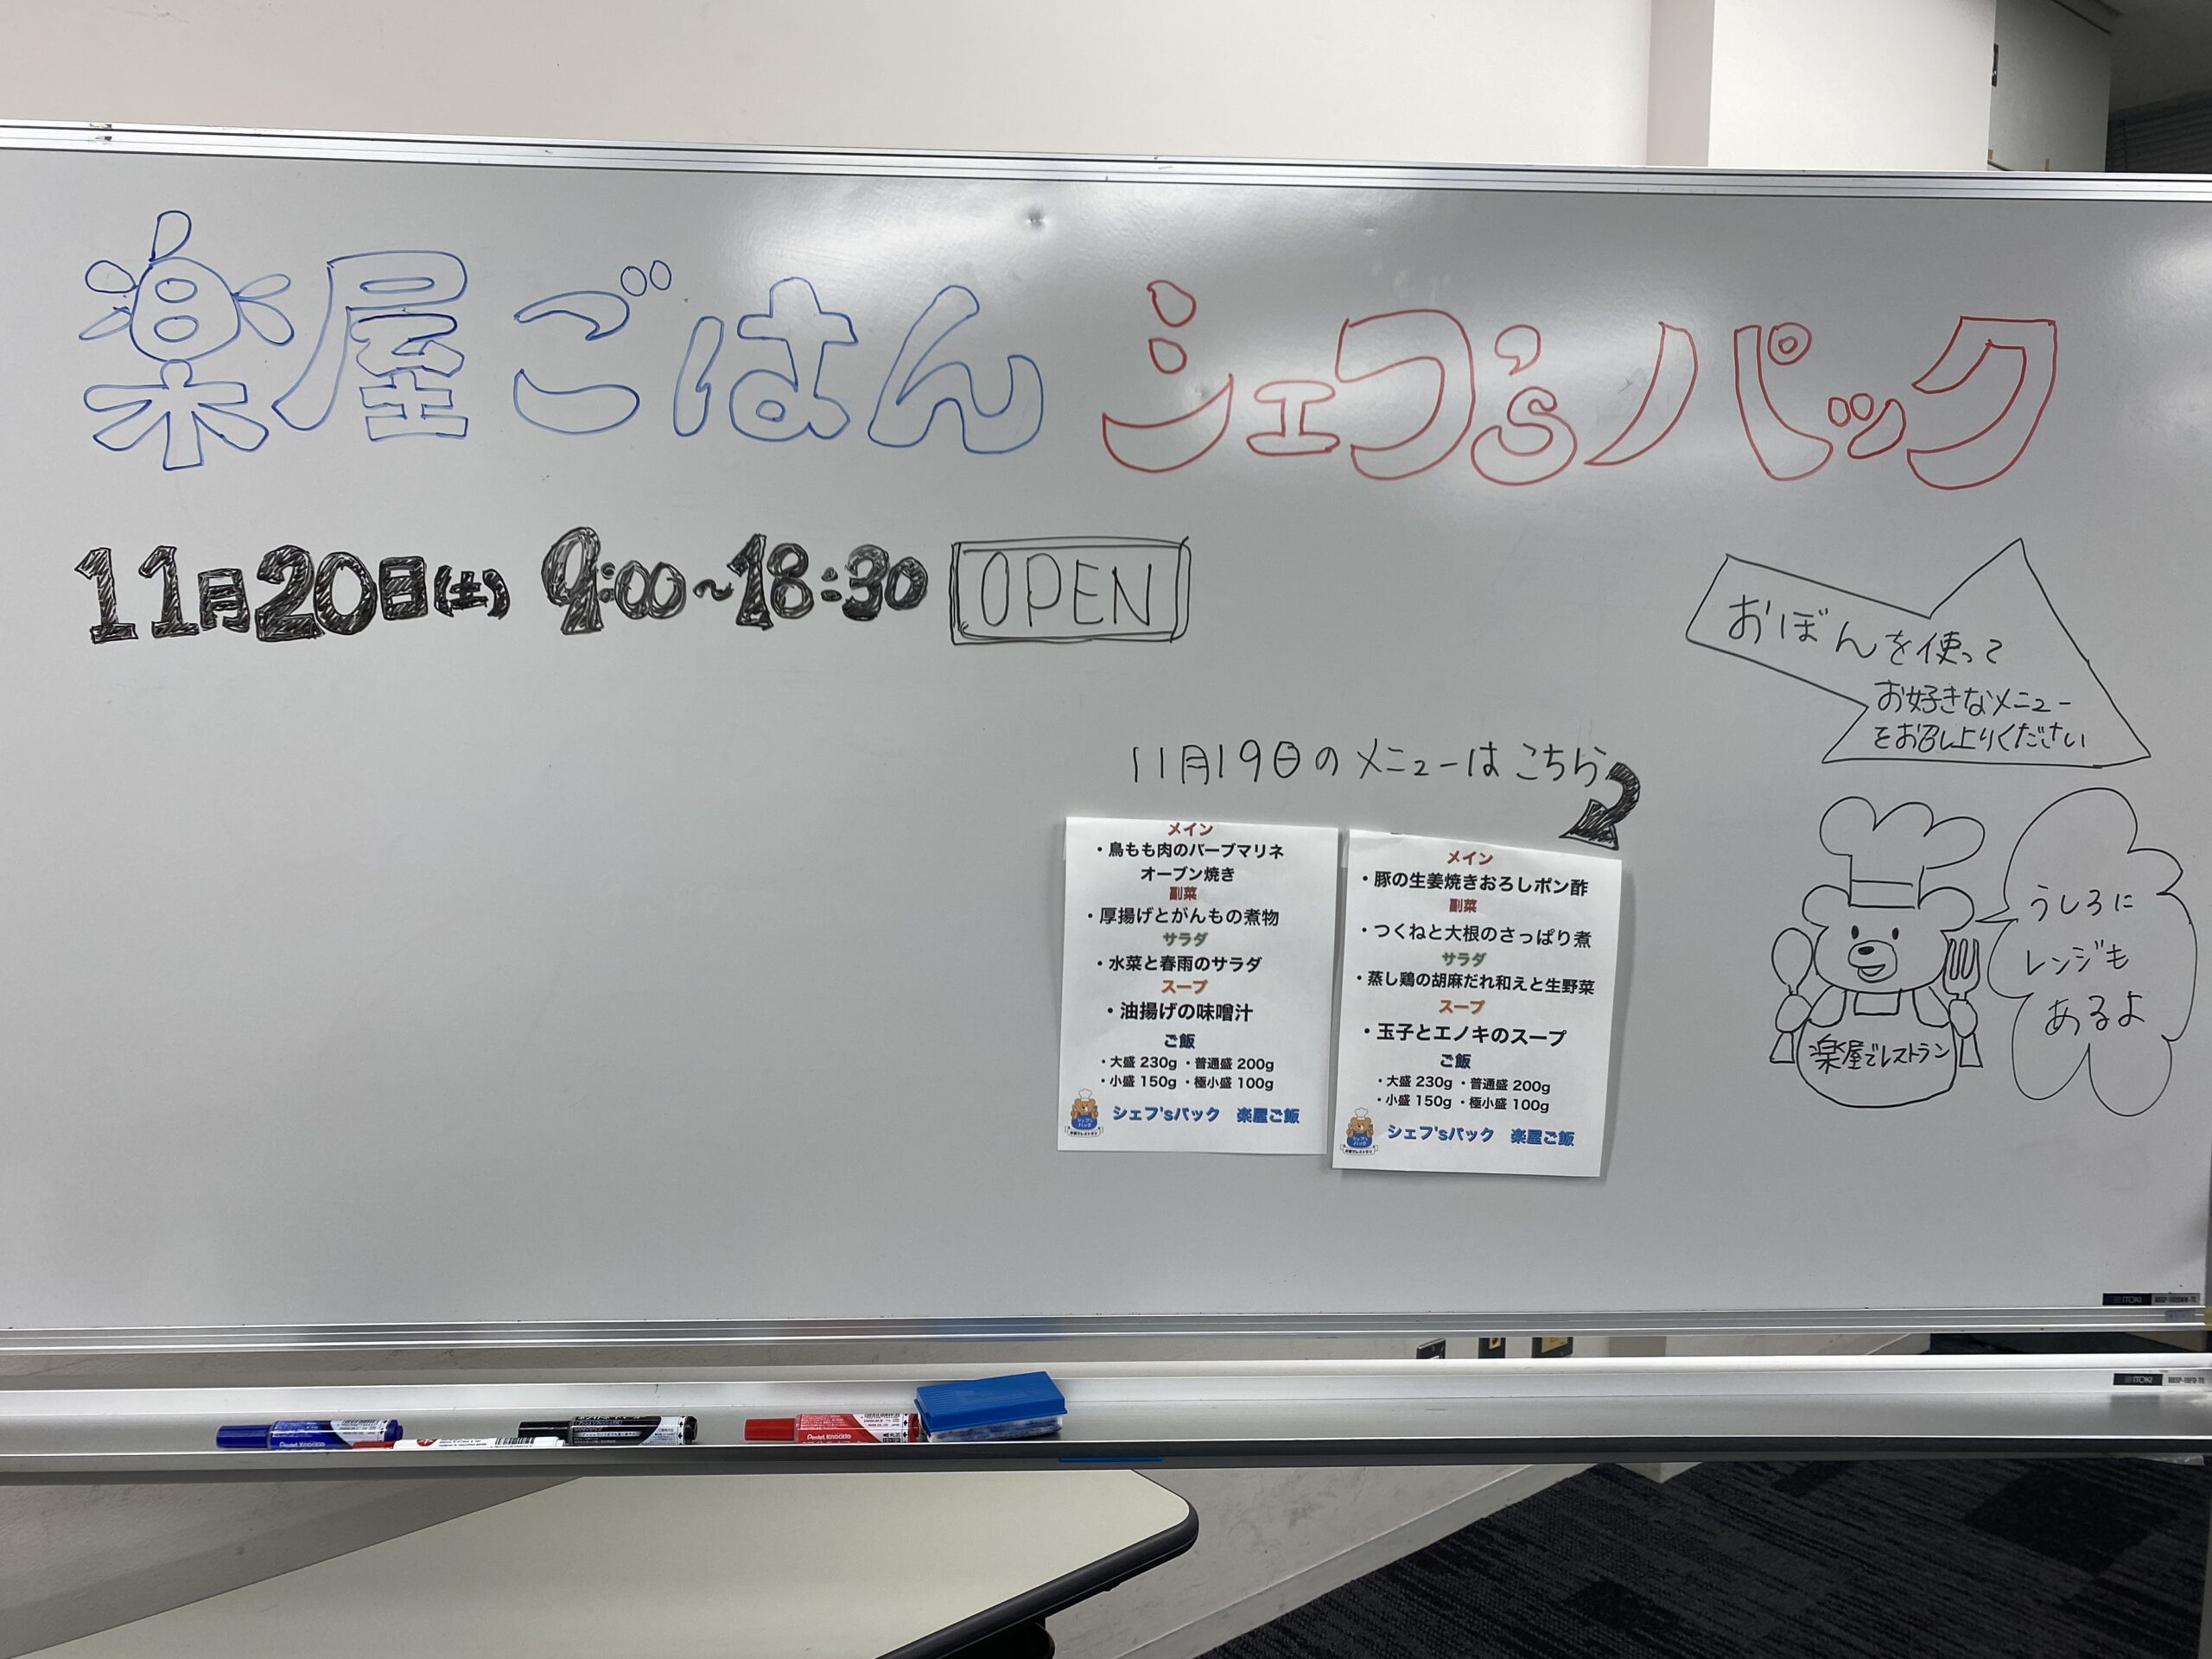 楽屋ごはん シェフ'sノパック
11月20日(土) 9:00~18:30 OPEN
おぼんを使って
お好きなメニュー
をお召し上りください
11月19日のメニューはこちら
メイン
・鳥もも肉のバーブマリネ
オーブン焼き
副菜
・厚揚げとがんもの煮物
サラダ
・水菜と春雨のサラダ
スープ
・油揚げの味噌汁
ご飯
・大盛 230g ・普通盛 200g
・小盛 150g ・極小盛 100g
シェフ'sパック 楽屋ご飯
メイン
・豚の生姜焼きおろしポン酢
副菜
・つくねと大根のさっぱり煮
サラダ
・蒸し鶏の胡麻だれ和えと生野菜
スープ
・玉子とエノキのスープ
ご飯
・大盛 230g ・普通盛 200g
・小盛 150g ・極小盛 100g
シェフ'sパック 楽屋ご飯
うしろに
レンジも
あるよ
楽屋でレストラン
ITOKI
ITOKI
Pentel Knockle
Pentel Knockle